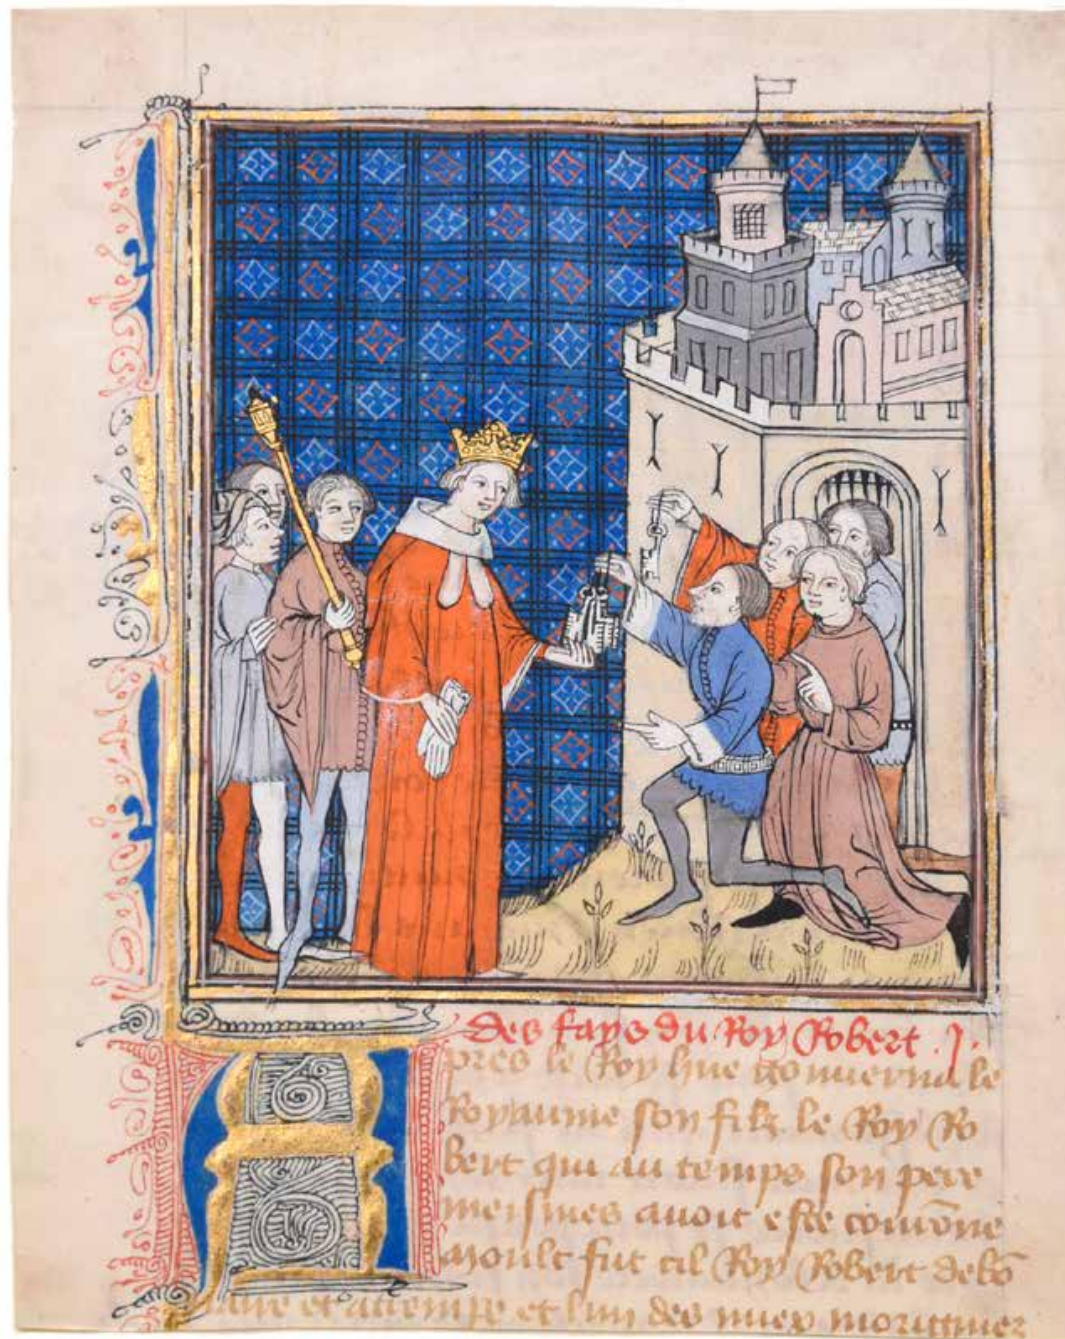 Des fays du Roy Robert .j.
Apres le Roy hue gouuerna le
Royaume son filz le Roy Ro
bert qui au temps son pere
meismes auoit este courōne
Moult fut cil Roy Robert de bō
aire et attempre et lun des miex moriginez